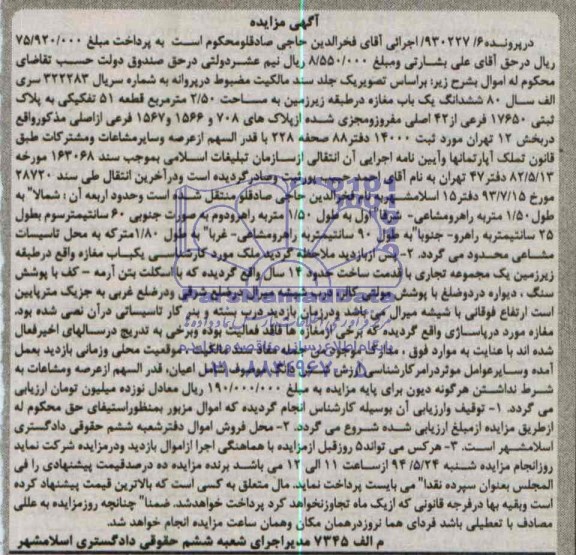 آگهی مزایده
درپرونده۶/ ۹۳۰۲۲۷/ اجرائی آقای فخرالدین حاجی صادقلومحکوم است به پرداخت مبلغ ۷۵/۹۲۰/۰۰۰
ریال درحق آقای علی بشارتی ومبلغ ۸/۵۵۰/۰۰۰ ریال نیم عشردولتی درحق صندوق دولت حسب تقاضای
محکوم له اموال بشرح زیر: براساس تصویریک جلد سند مالکیت مضبوط درپروانه به شماره سریال ۳۲۲۲۸۳ سری
الف سال ۸۰ ششدانگ یک باب مغازه درطبقه زیرزمین به مساحت ۲/۵۰ مترمربع قطعه ۵۱ تفکیکی به پلاک
ثبتی ۱۷۶۵۰ فرعی از۴۲ اصلی مفروزومجزی شده ازپلاک های ۷۰۸ و ۱۵۶۶ و۱۵۶۷ فرعی ازاصلی مذکورواقع
دربخش ۱۲ تهران مورد ثبت ۱۴۰۰۰ دفتر۸۸ صحفه ۲۲۸ با قدر السهم ازعرصه وسایرمشاعات ومشترکات طبق
قانون تملک آپارتمانها وآیین نامه اجرایی آن انتقالی ازسازمان تبلیغات اسلامی بموجب سند ۱۶۳۰۶۸ مورخه
۸۲/۵۱۳ دفتر۴۷ تهران به نام آقای احمد حسب پورغیت وصادرگردیده است ودرآخرین انتقال طی سند ۲۸۷۲۰
مورخ ۹۳/۷/۱۵ دفتر۱۵ اسلامشهربه نام فخرالدین حاجی صادقلو منتقل شده است وحدود اربعه آن : شمالا" به
طول ۱/۵۰ متربه راهرومشاعی- شرقا" اول به طول ۱/۵۰ متربه راهرودوم به صورت جنوبی ۶۰ سانتیمترسوم بطول
۲۵ سانتیمتربه راهرو- جنوبا" به طول ۹۰ سانتیمتربه راهرومشاعی- غربا" به طول ۱/۸۰مترکه به محل تاسیسات
مشاعی محدود می گردد. ۲- پس ازبازدید ملاحظه گردید ملک مورد کارشناسی یکباب مغازه واقع درطبقه
زیرزمین یک مجموعه تجاری با قدمت ساخت حدود ۱۴ سال واقع گردیده که با اسکلت بتن آرمه - کف با پوشش
سنگ ، دیواره دردوضلع با پوشش مولتی کالر ودر شیشه میرال درضلع شرقی ودرضلع غربی به جزیک مترپایین
است ارتفاع فوقانی با شیشه میرال می باشد ودرزمان بازدید درب بسته و بنر کار تاسیساتی درآن نصی شده بود.
مغازه مورد درپاساژی واقع گردیده که برخی ازمغازه ها فاقد فعالیت بوده وبرخی به تدریج درسالهای اخیرفعال
شده اند با عنایت به موارد فوق ، مدارک موجودمن جمله مفاد سند مالکیت ، موقعیت محلی وزمانی بازدید بعمل
آمده وسایرعوامل موثردرامرکارشناسی ارزش ششدانگ ملک موصوف شامل اعیان، قدر السهم ازعرصه ومشاعات به
شرط نداشتن هرگونه دیون برای پایه مزایده به مبلغ ۱۹۰/۰۰۰/۰۰۰ ریال معادل نوزده میلیون تومان ارزیابی
می گردد. ۱- توقیف وارزیابی آن بوسیله کارشناس انجام گردیده که اموال مزبور بمنظوراستیفای حق محکوم له
ازطریق مزایده ازمبلغ ارزیابی شده شروع می گردد. ۲- محل فروش اموال دفترشعبه ششم حقوقی دادگستری
اسلامشهر است. ۳- هرکس می تواند۵ روزقبل ازمزایده با هماهنگی اجرا ازاموال بازدید ودرمزایده شرکت نماید
روزانجام مزایده شنبه ۹۴/۵/۲۴ ازساعت ۱۱ الی ۱۲ می باشد برنده مزایده ده درصدقیمت پیشنهادی را فی
المجلس بعنوان سپرده نقدا" می بایست پرداخت نماید. مال متعلق به کسی است که بالاترین قیمت پیشنهاد کرده
است وبقیه بها درفرجه قانونی که ازیک ماه تجاوزنخواهد کرد پرداخت خواهدشد. ضمنا" چنانچه روزمزایده به عللی
مصادف با تعطیلی باشد فردای هما نروزدرهمان مکان وهمان ساعت مزایده انجام خواهد شد.
م الف ۷۳۴۵ مدیراجرای شعبه ششم حقوقی دادگستری اسلامشهر